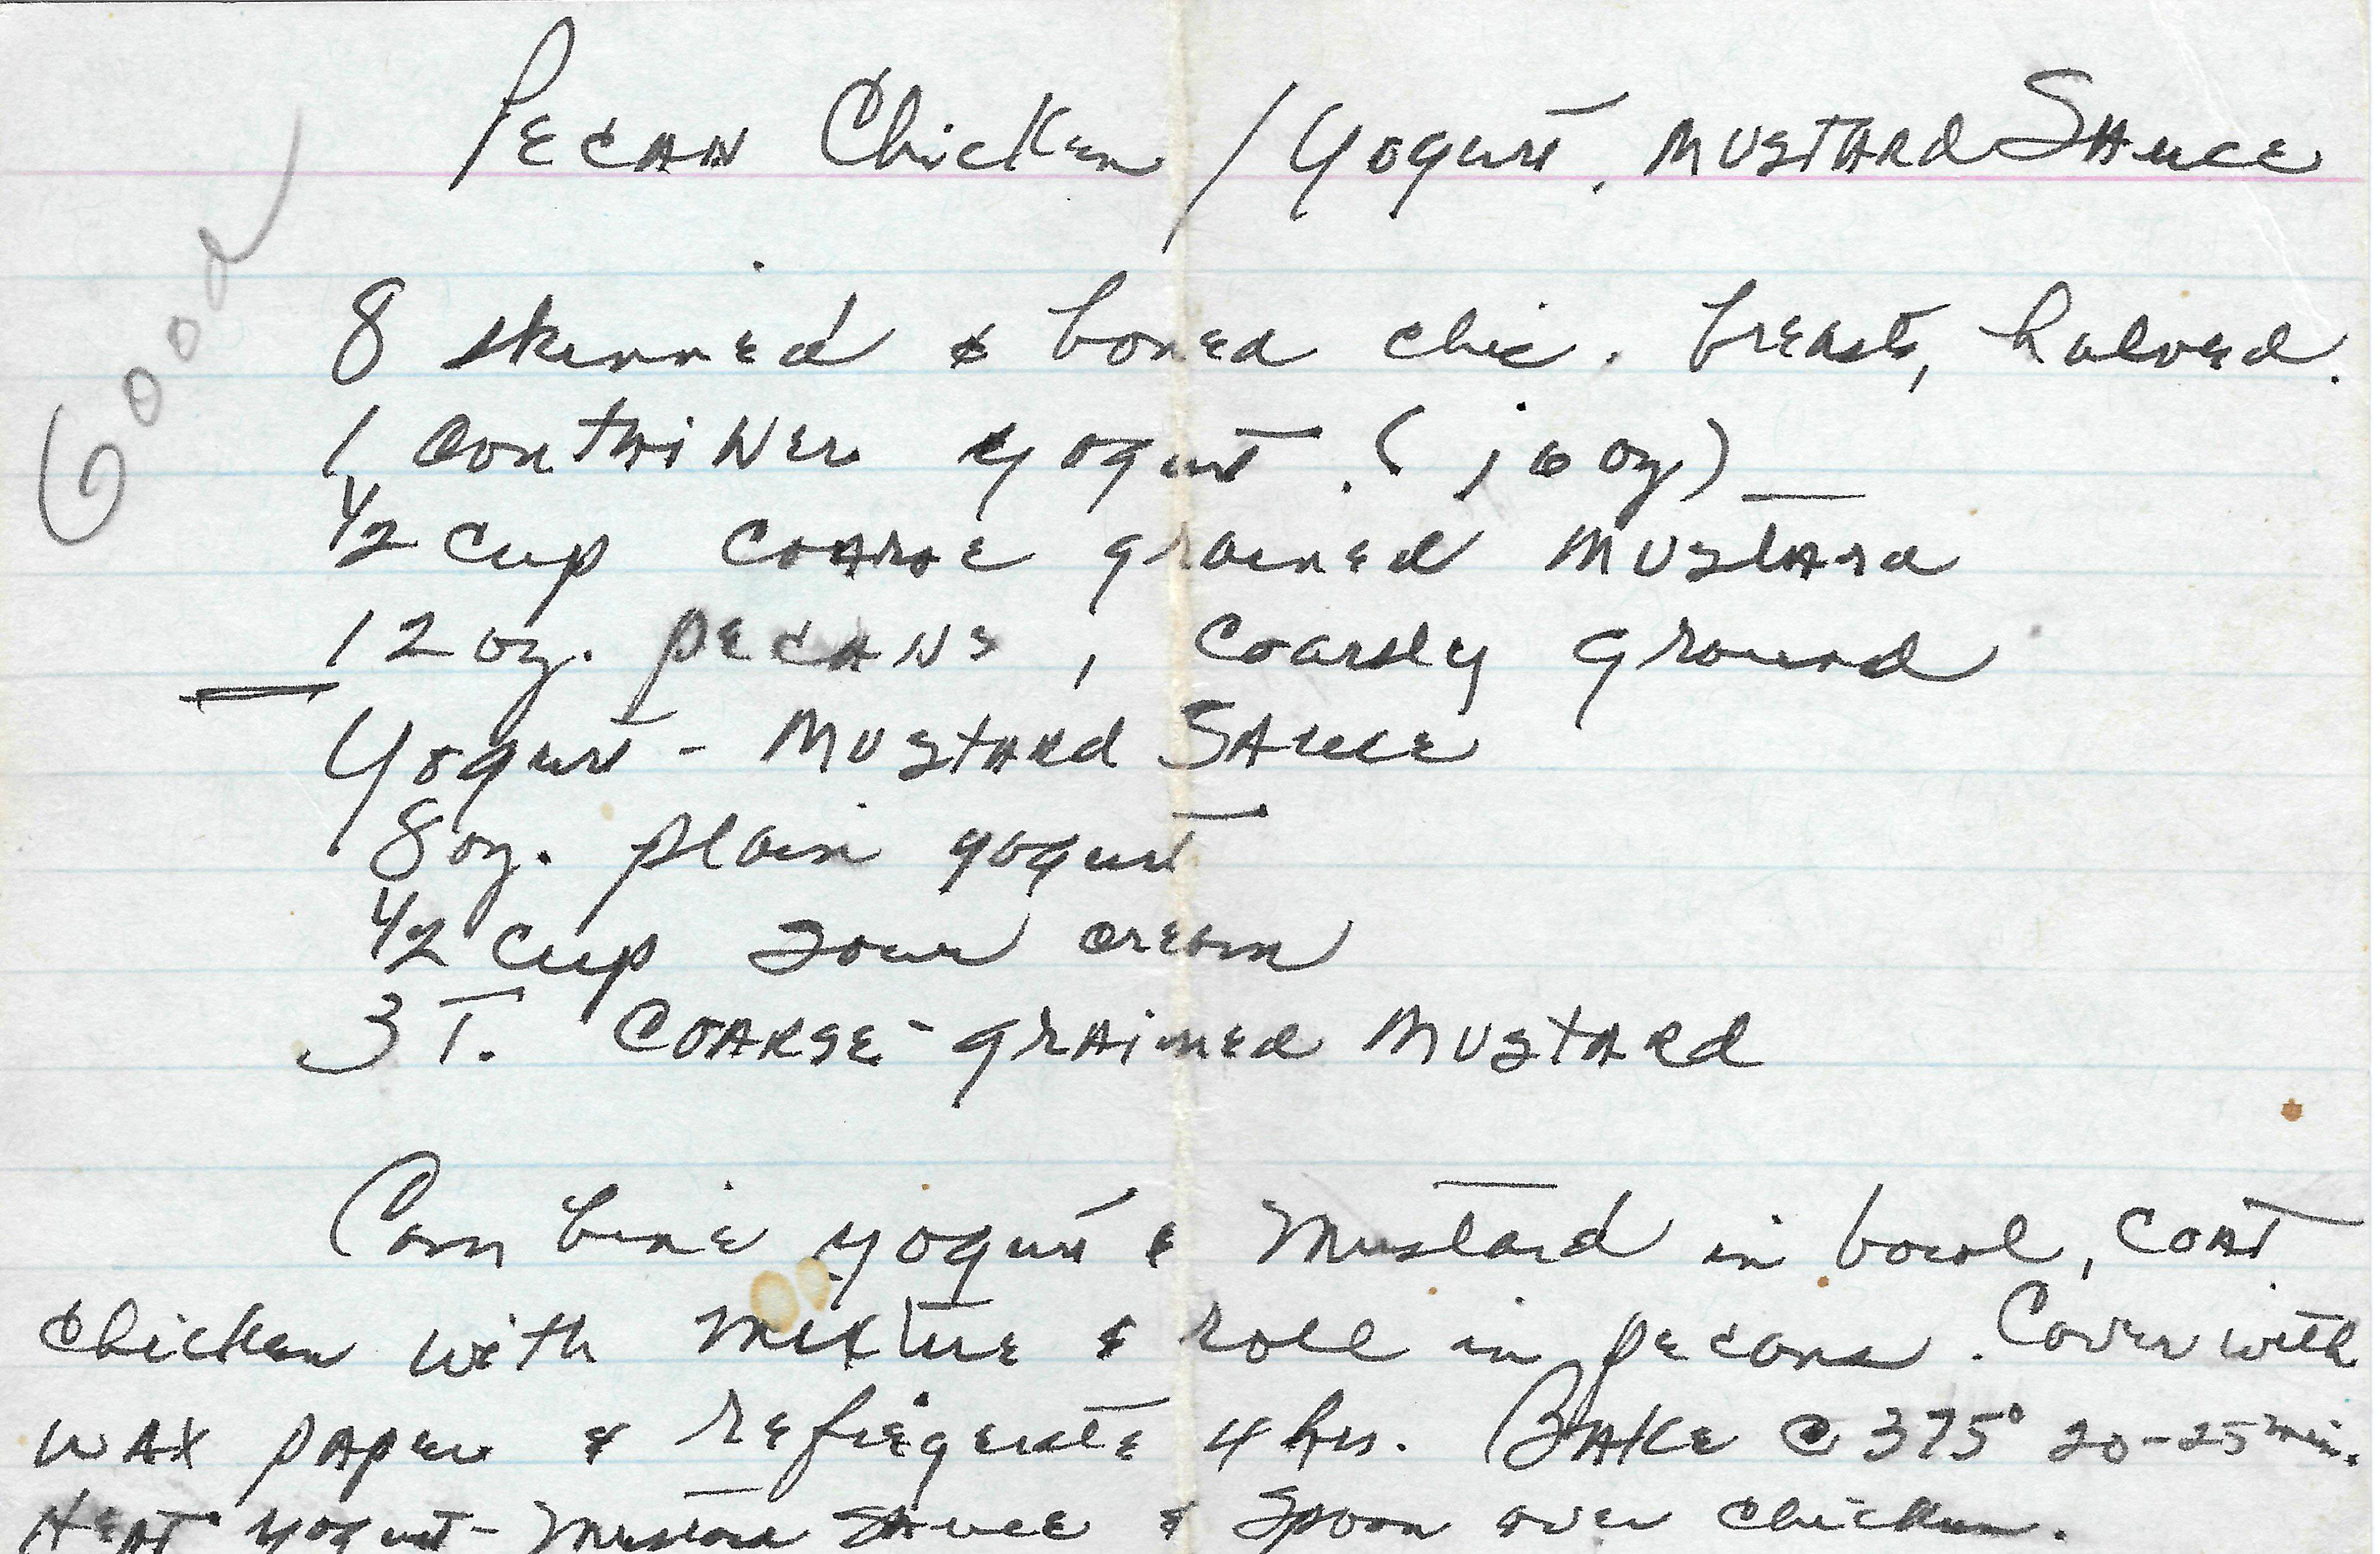 Good
Pecan Chicken / Yogurt, Mustard Sauce
8 skinned & boned chic. breasts, halved.
1 container yogurt. (16 oz)
1/2 cup coarse grained mustard
12 oz. pecans, coarsly ground
Yogurt - Mustard Sauce
8 oz. plain yogurt
1/2 cup sour cream
3 T. coarse-grained mustard
Combine yogurt & mustard in bowl, coat
chicken with mixture & roll in pecans. Cover with
wax paper & refrigerate 4 hrs. Bake @ 375° 20-25 min.
Heat yogurt-mustard sauce & spoon over chicken.